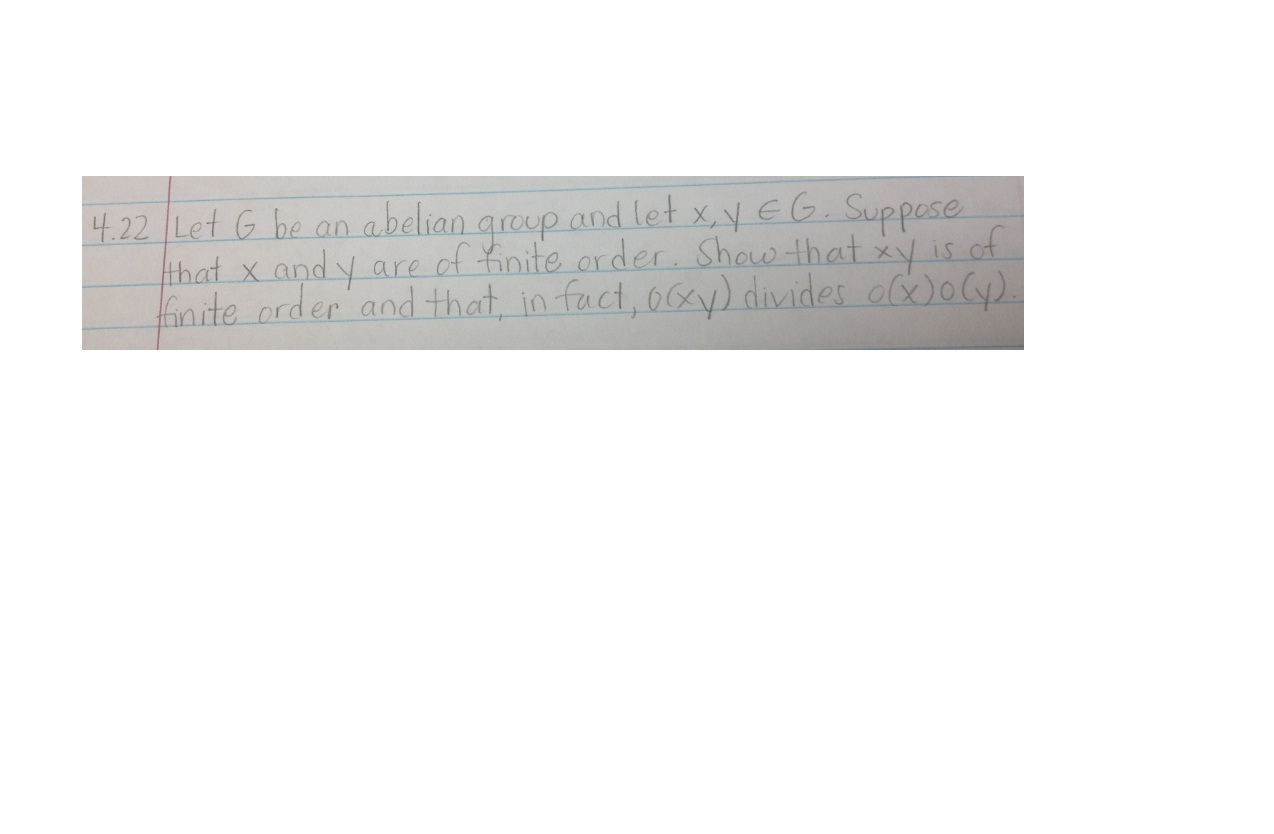 4.22 Let G be an abelian group and let x, y ∈ G. Suppose
that x and y are of finite order. Show that xy is of
finite order and that, in fact, o(xy) divides o(x)o(y).